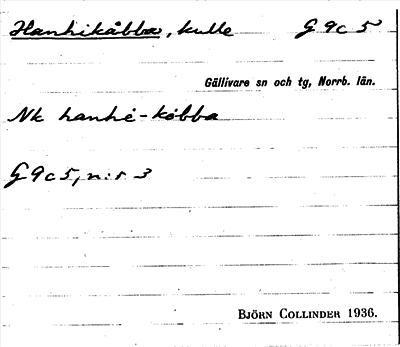 Hanhikåbba, kulle G 9c 5
Gällivare sn och tg, Norrb. län.
Nk hanhè-kåbba
G 9c5, n:r 3
BJÖRN COLLINDER 1936.